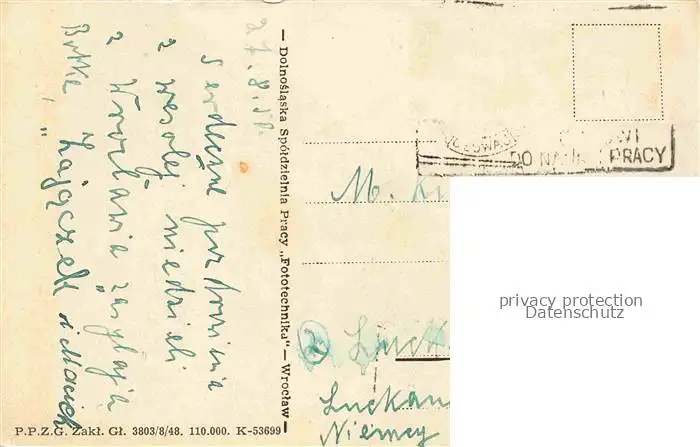 27.8.50.
Serdeczne pozdrowienia
z wesołej niedzieli
z Wrocławia zasyłają
"Zajączek i Maciek
— Dolnośląska Spółdzielnia Pracy „Fototechnika" — Wrocław —
P.P.Z.G. Zakł. Gł. 3803/8/48. 110.000. K-53699
DO NAUKI PRACY
M.
Luck
Luckau
Niemcy
privacy protection
Datenschutz